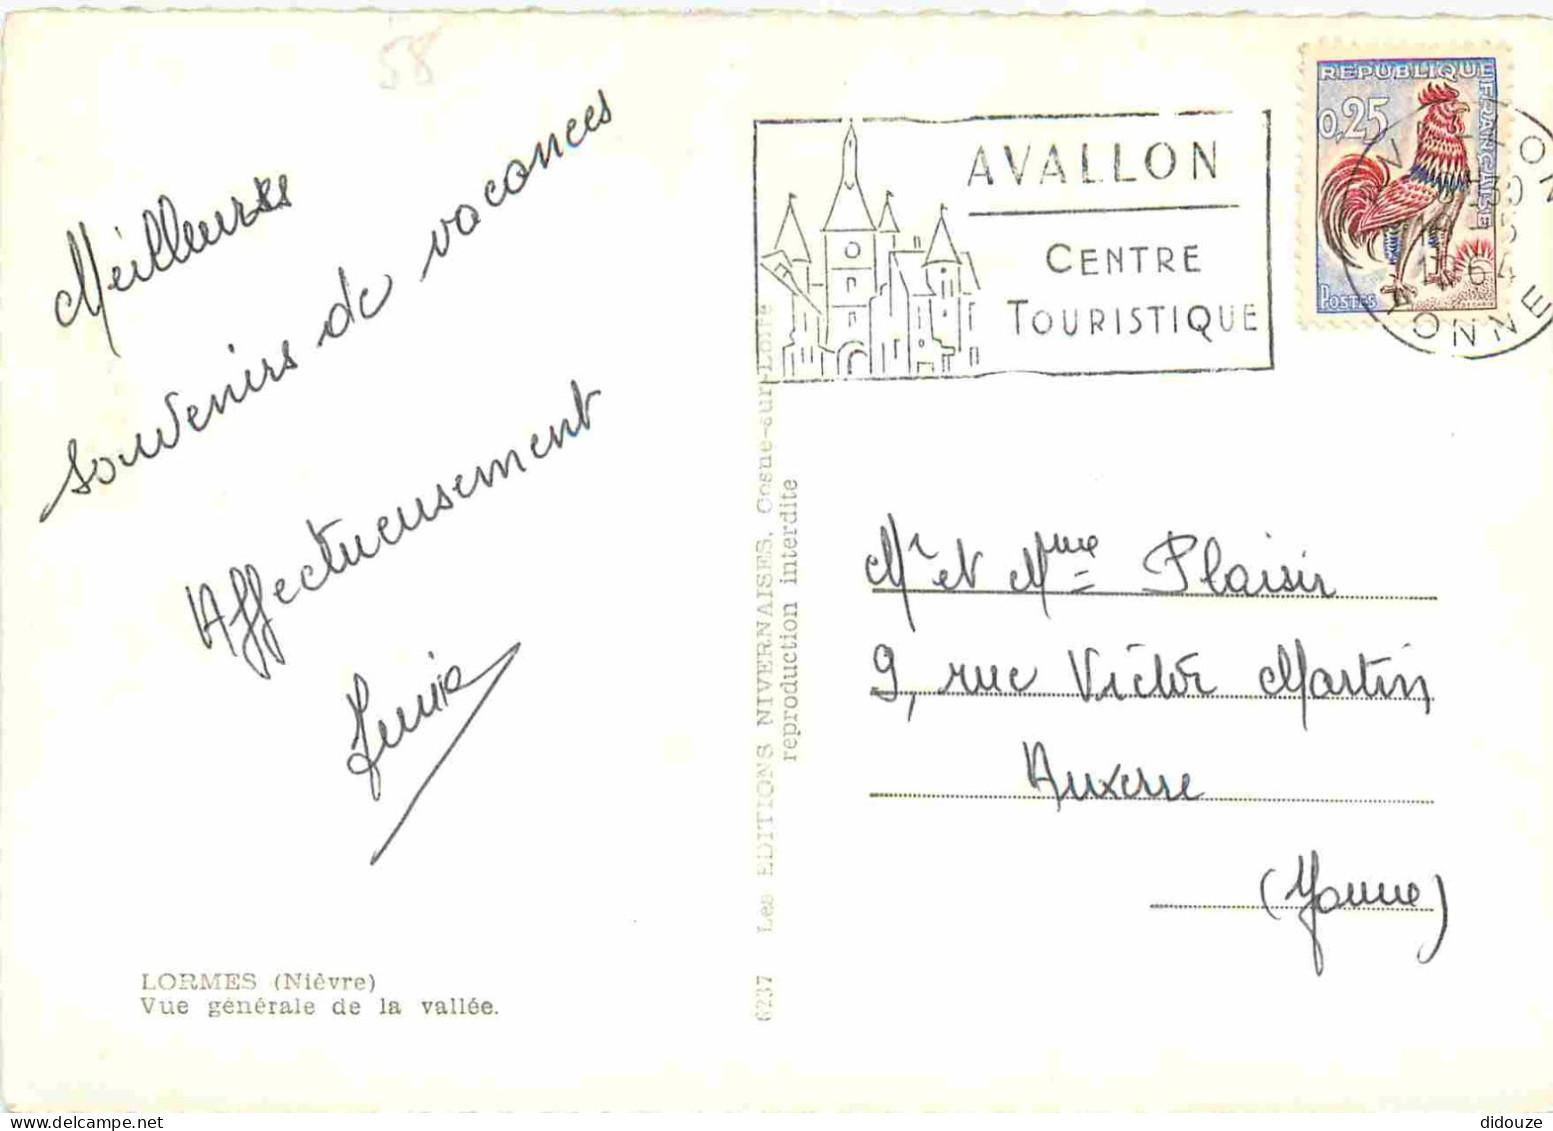 58
Meilleurs
souvenirs de vacances
Affectueusement
LORMES (Nièvre)
Vue générale de la vallée.
6237 Les EDITIONS NIVERNAISES, Cosne-sur-Loire
reproduction interdite
AVALLON
CENTRE
TOURISTIQUE
REPUBLIQUE FRANÇAISE
0,25
POSTES
1964
YONNE
Mr et Mme Plaisir
9, rue Victor Martin
Auxerre
(Yonne)
didouze